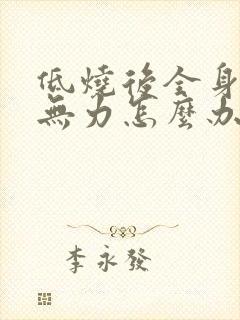 低燒後全身
無力怎麼办
李永發